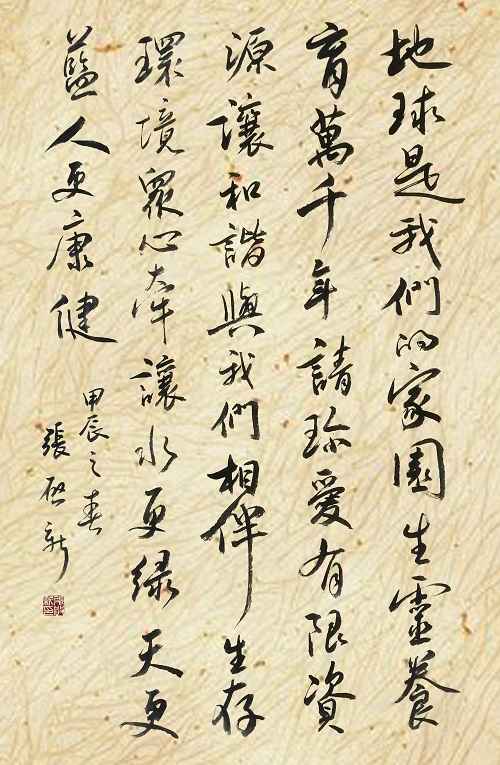 地球是我們的家園生靈養
育萬千年請珍愛有限資
源讓和諧與我們相伴生存
環境眾心牽讓水更綠天更
藍人更康健
甲辰之春
張啟新